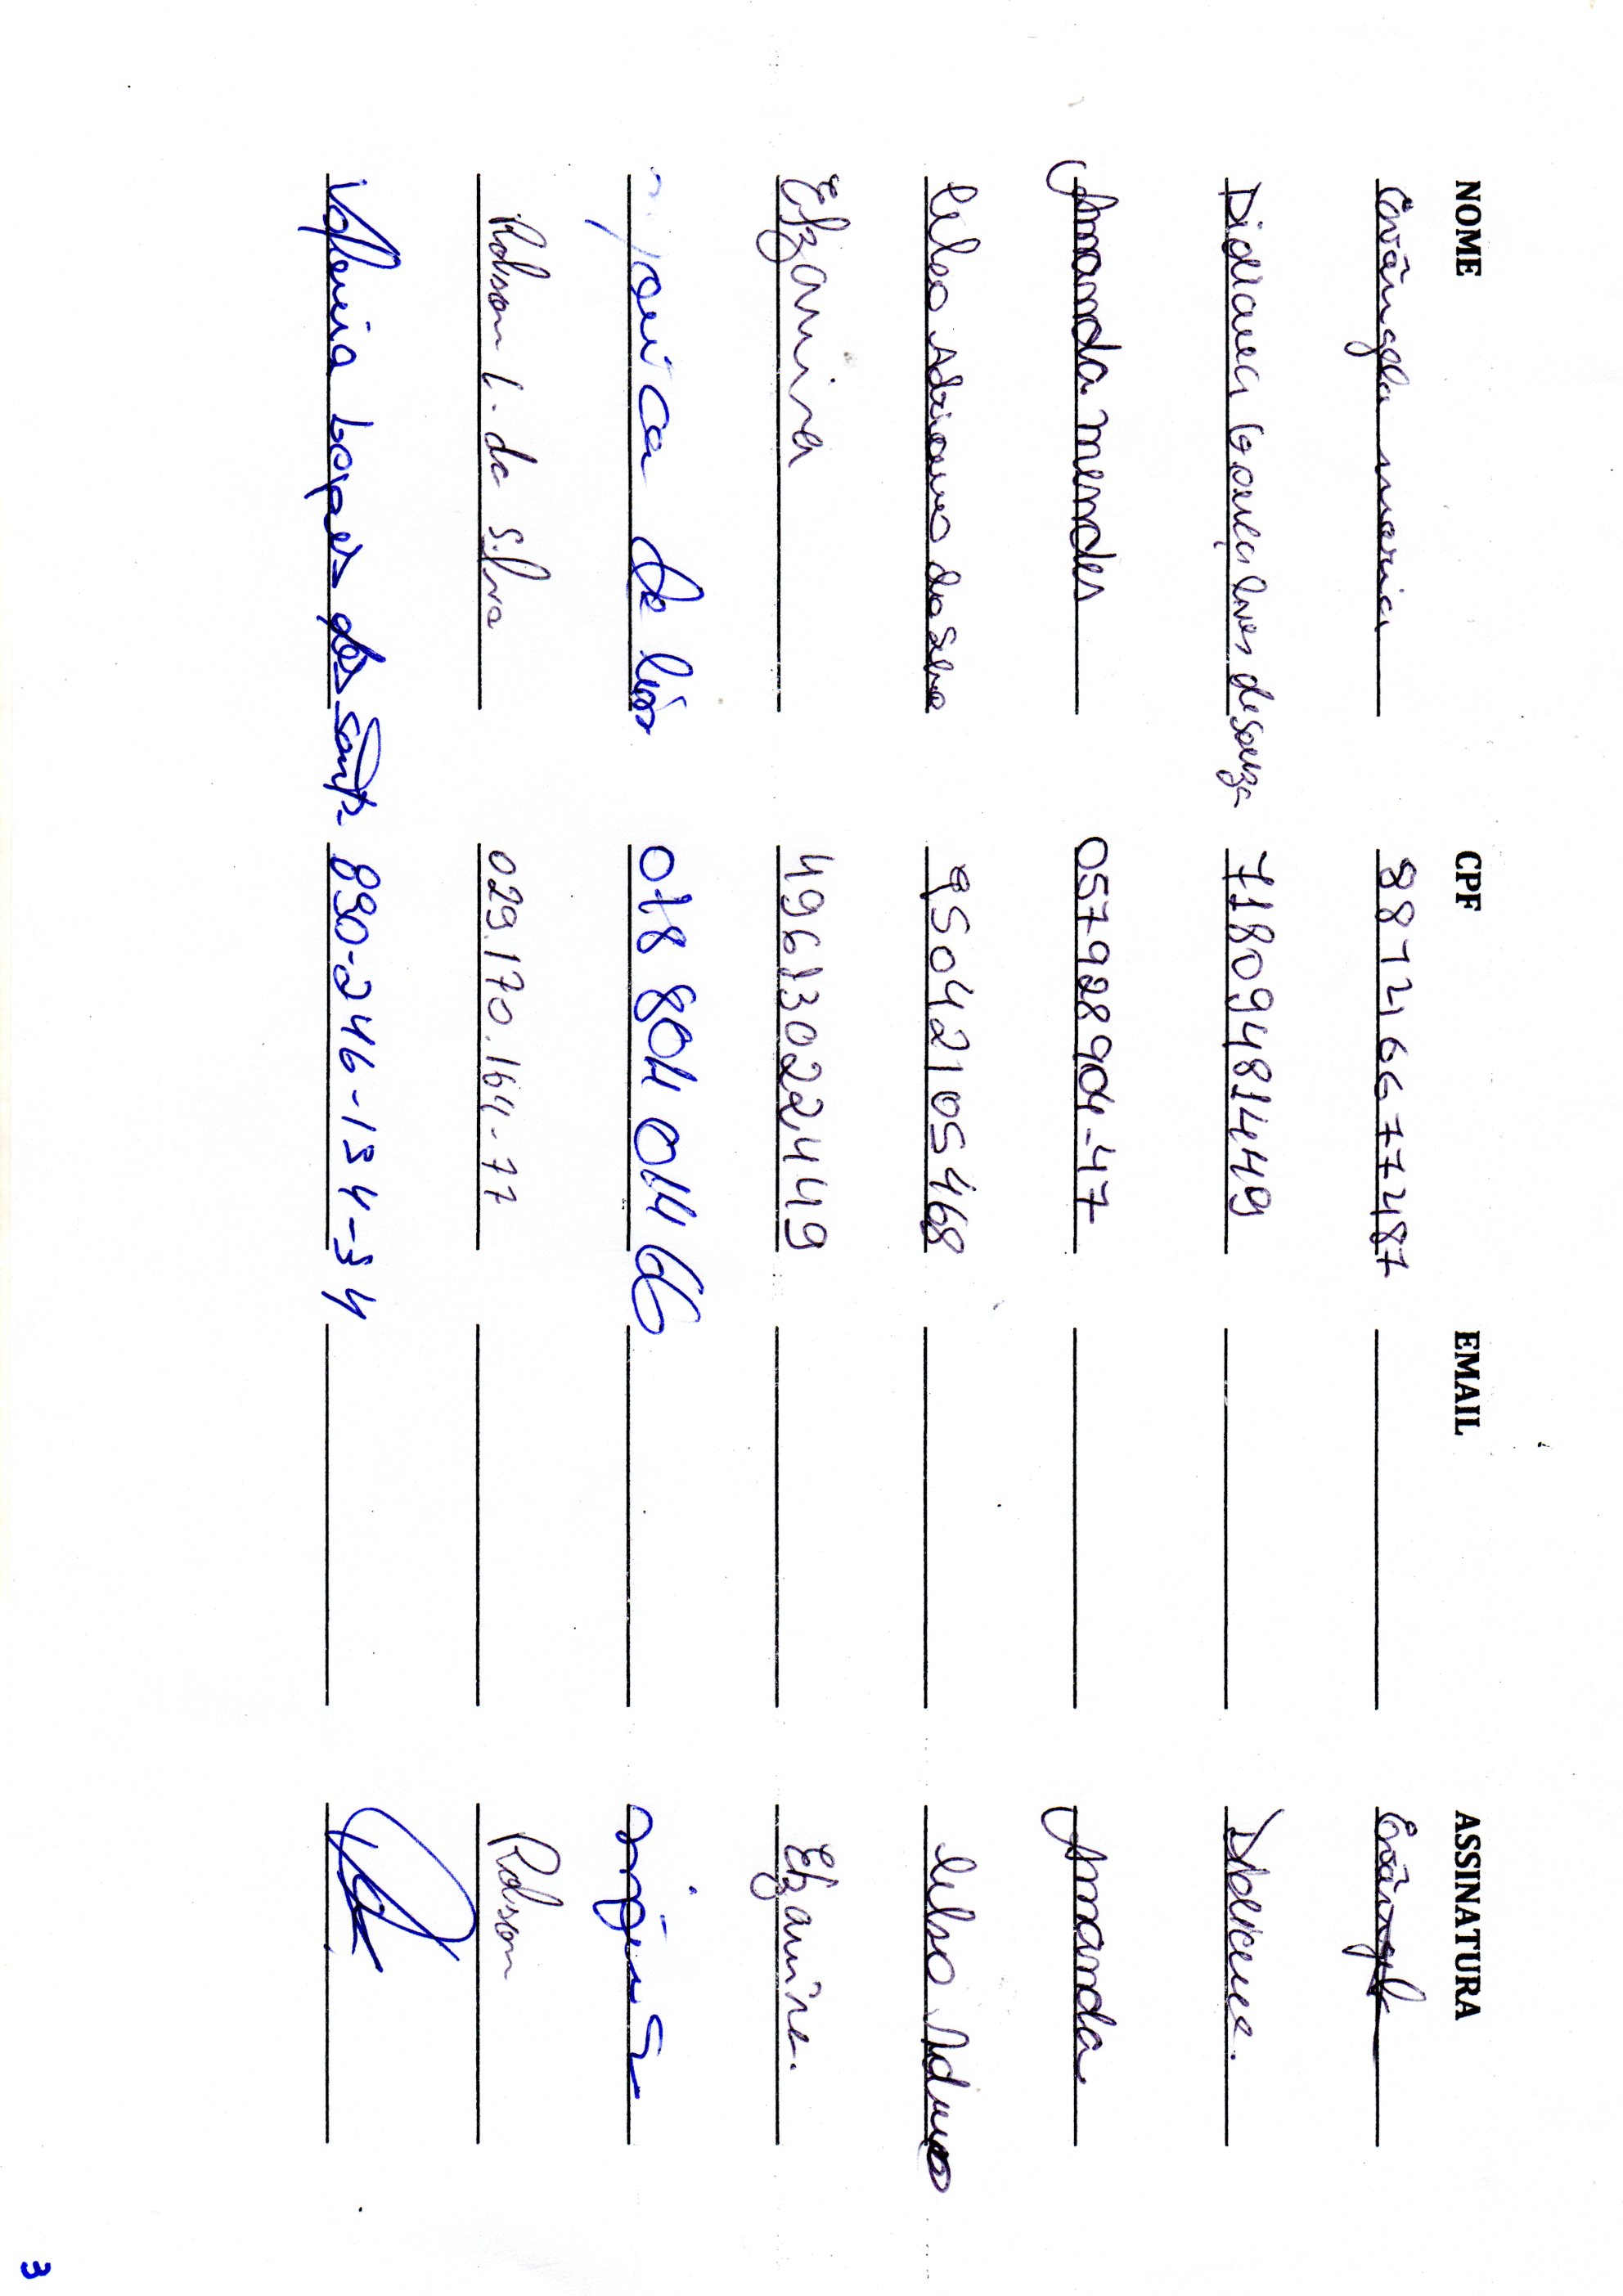 NOME CPF EMAIL ASSINATURA
Evângela maria 88721667487 Evângela
Didiane Gonçalves de Souza 71809481449
Amanda mendes 057928904-47 Amanda
Celso Adriano da Silva 95042105468 Celso Adriano
Elzanira 49613022449 Elzanira.
de 078 804 014 66
Robson L. da Silva 029.170.164-77 Robson
Lopes dos Santos 890-246-134-34
3